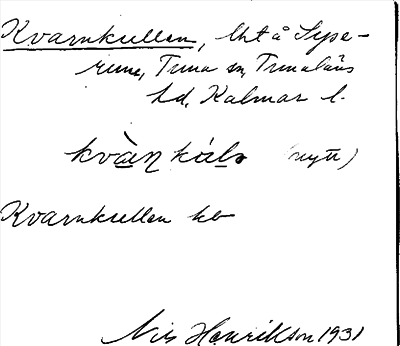 Kvarnkullen, lht å Sype-
rum, Tuna sn, Tunaläns
hd, Kalmar l.
kvàn̲ kálə (nytt)
Kvarnkullen kb
Nils Henrikson 1931